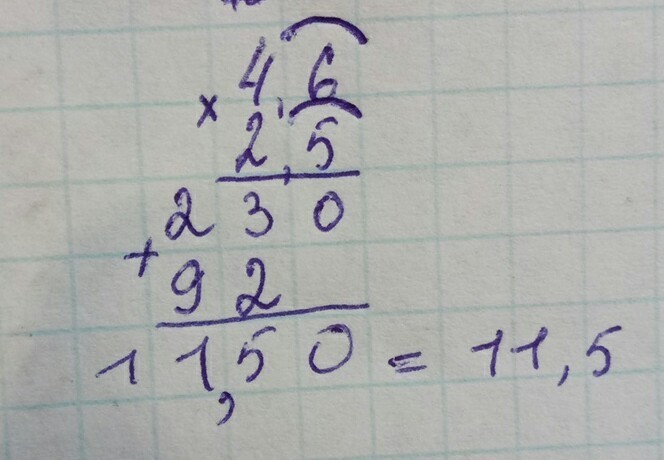 4,6
× 2,5
230
+ 92
11,50 = 11,5